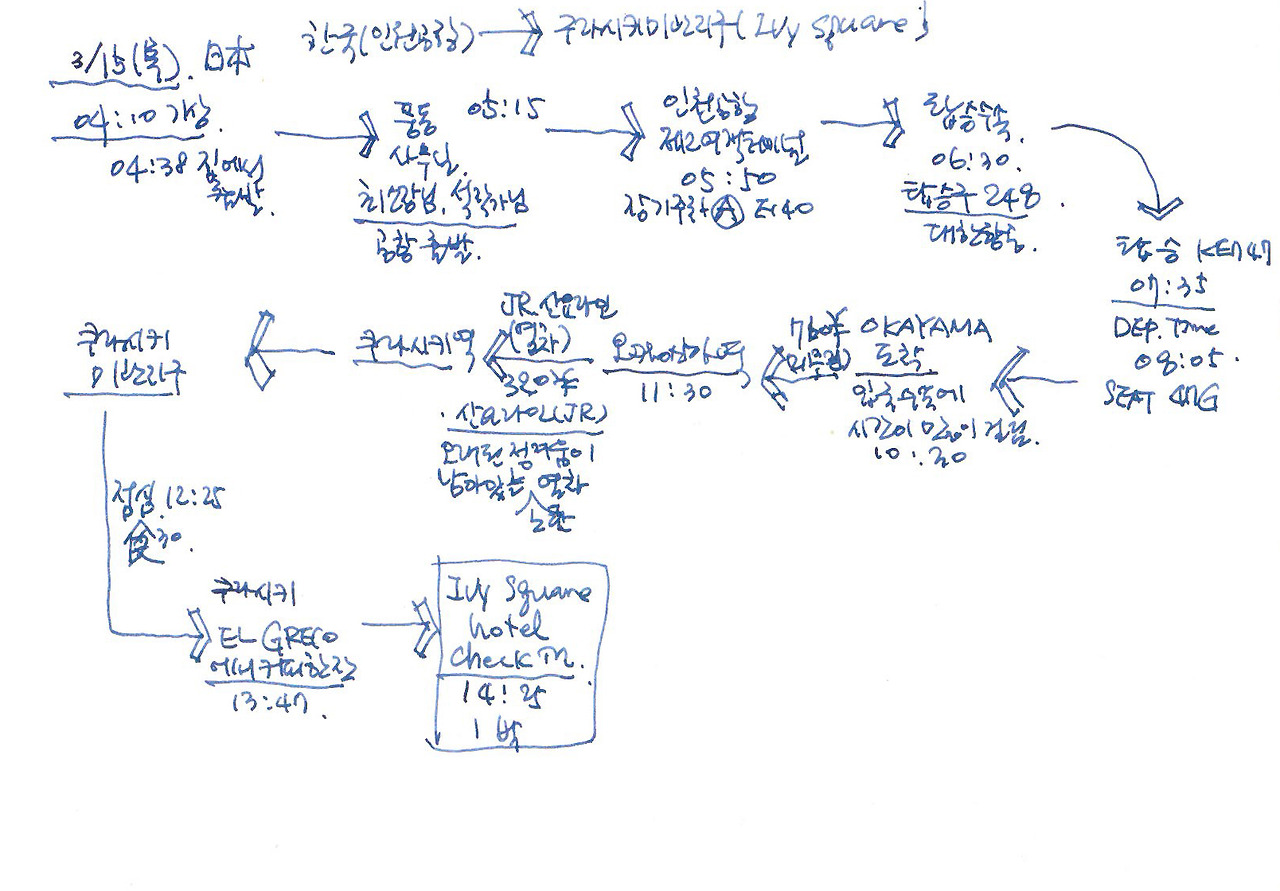 3/15(목). 日本
한국(인천공항) → 쿠라시키미관지구(Ivy Square)
04:10 기상
04:38 집에서
출발
풍동 05:15
사무실
최소장님, 석작가님
공항 출발.
인천공항
제2여객터미널
05:50
장기주차 Ⓐ E140
탑승수속
06:30.
탑승구 248.
대한항공.
탑승 KE747
07:35
DEP. Time
08:05.
SEAT 47G
OKAYAMA
도착
입출수속에
시간이 많이 걸림.
10:30
760¥
오카야마역
11:30
JR 산요라인
(열차)
320¥
산요라인(JR)
오래된 정겨움이
남아있는 열차
노란
쿠라시키역
쿠라시키
미관지구
점심 12:25
食30.
쿠라시키
EL GRECO
에서 커피한잔
13:47.
Ivy Square
hotel
check in.
14:25
1박